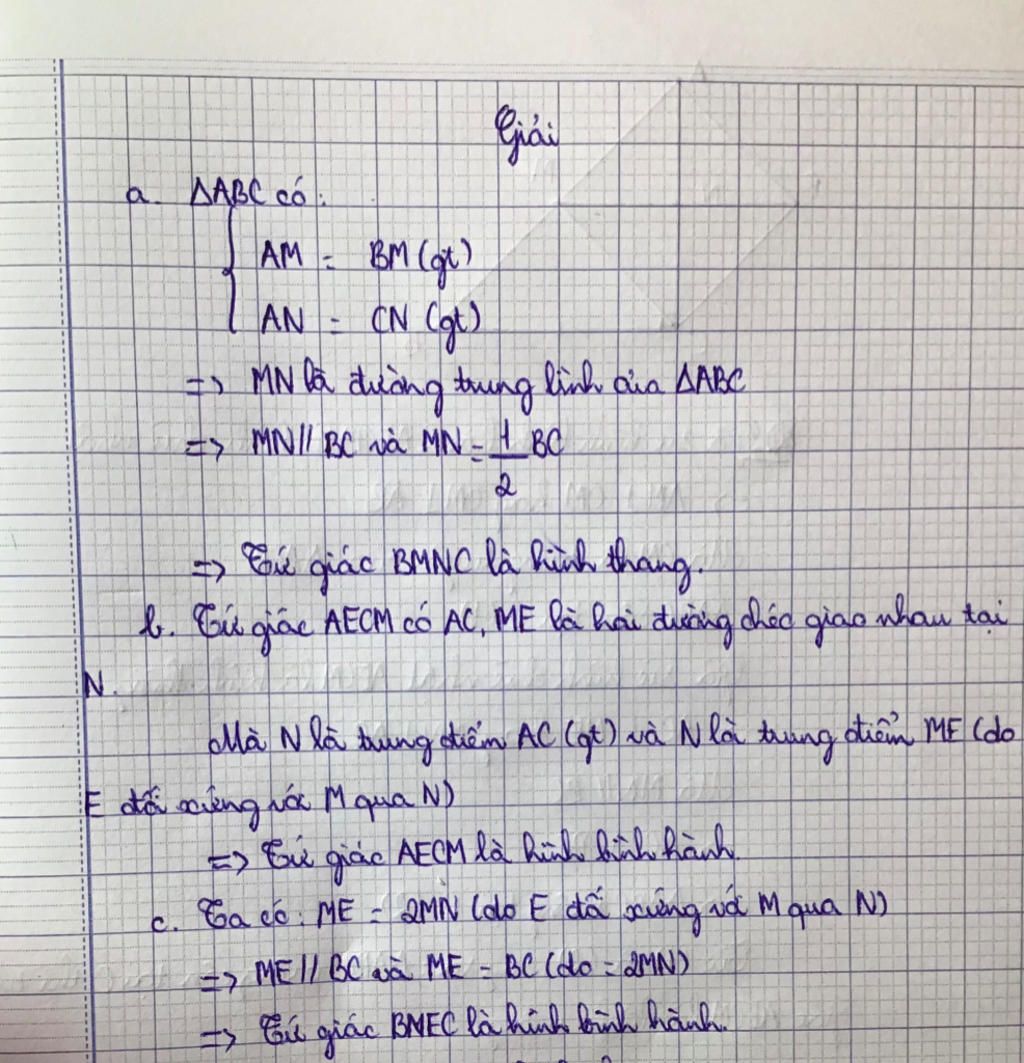 Giải
a. ΔABC có:
AM = BM (gt)
AN = CN (gt)
=> MN là đường trung bình của ΔABC
=> MN // BC và MN = 1/2 BC
=> Tứ giác BMNC là hình thang.
b. Tứ giác AECM có AC, ME là hai đường chéo giao nhau tại
N.
Mà N là trung điểm AC (gt) và N là trung điểm ME (do
E đối xứng với M qua N)
=> Tứ giác AECM là hình bình hành.
c. Ta có: ME = 2MN (do E đối xứng với M qua N)
=> ME // BC và ME = BC (do = 2MN)
=> Tứ giác BMEC là hình bình hành.